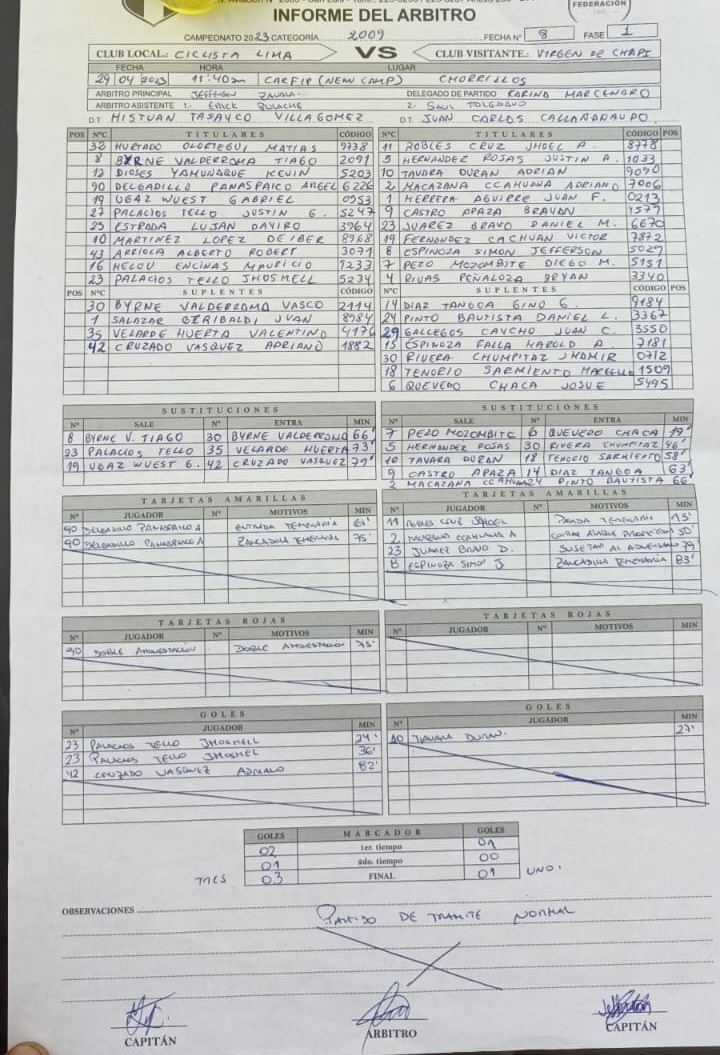 FEDERACIÓN
INFORME DEL ARBITRO
CAMPEONATO 2023 CATEGORÍA 2009 FECHA N° 8 FASE 1
CLUB LOCAL.: CICLISTA LIMA VS CLUB VISITANTE.: VIRGEN DE CHAPI
FECHA HORA LUGAR
29/04/2023 11:40am CARFIP (NEW CAMP) CHORRILLOS
ARBITRO PRINCIPAL JEFFERSON ZAVALA. DELEGADO DE PARTIDO KARINO MARCENARO
ARBITRO ASISTENTE 1.- ERICK QUIACHE 2.- SAUL TOLEDANO
D.T HISTUAN TASAYCO VILLAGOMEZ D.T JUAN CARLOS CALLAÑAUPO.
POS N°C TITULARES CÓDIGO N°C TITULARES CÓDIGO POS
HURTADO OLORTEGUI MATIAS 9738 11 ROBLES CRUZ JHOEL A. 8778
8 BYRNE VALDERROMA TIAGO 2091 5 HERNANDEZ ROJAS JUSTIN A. 1033
12 DIOSES YAMUNAQUE KEVIN 5203 10 TAVARA DURAN ADRIAN 9090
90 DELGADILLO PANASPAICO ANGEL 6226 2 MACAZANA CCAHUANA ADRIANO 7006
19 UGAZ WUEST GABRIEL 0953 1 HERRERA AGUIRRE JUAN F. 0213
27 PALACIOS TELLO JUSTIN G. 5247 9 CASTRO APAZA BRAYAN 4577
25 ESTRADA LUJAN DAYIRO 3964 23 JUAREZ BRAVO DANIEL M. 6670
10 MARTINEZ LOPEZ DEIBER 8968 19 FERNANDEZ CACHUAN VICTOR 7872
43 ARRIOLA ALBERTO ROBERT 3071 8 ESPINOZA SIMON JEFFERSON 5029
16 HELOU ENCINAS MAURICIO 1233 7 PEZO MOZOMBITE DIEGO M. 5151
23 PALACIOS TELLO JHOSMELL 5234 4 RIVAS PEÑALOZA BRYAN 3340
POS N°C SUPLENTES CÓDIGO N°C SUPLENTES CÓDIGO POS
30 BYRNE VALDERROMA VASCO 2114 14 DIAZ TANGOA GINO G. 9184
1 SALAZAR GERIBALDI JUAN 8984 24 PINTO BAUTISTA DANIEL L. 3367
35 VELARDE HUERTA VALENTINO 4176 29 GALLEGOS CAYCHO JUAN C. 3550
42 CRUZADO VASQUEZ ADRIANO 1882 15 ESPINOZA FALLA HAROLD A. 7181
30 RIVERA CHUMPITAZ JHAMIR 0712
18 TENORIO SARMIENTO MARCELLO 1509
6 QUEVEDO CHACA JOSUE 5495
SUSTITUCIONES SUSTITUCIONES
N° SALE N° ENTRA MIN N° SALE N° ENTRA MIN
8 BYRNE V. TIAGO 30 BYRNE VALDERROMA 66' 7 PEZO MOZOMBITE 6 QUEVEDO CHACA 19'
23 PALACIOS TELLO 35 VELARDE HUERTA 73' 5 HERNANDEZ ROSAS 30 RIVERA CHUMPITAZ 46'
19 UGAZ WUEST G. 42 CRUZADO VASQUEZ 79' 10 TAVARA DURAN 18 TENORIO SARMIENTO 58'
9 CASTRO APAZA 14 DIAZ TANGOA 63'
2 MACAZANA CCAHUANA 24 PINTO BAUTISTA 66'
TARJETAS AMARILLAS TARJETAS AMARILLAS
N° JUGADOR N° MOTIVOS MIN N° JUGADOR N° MOTIVOS MIN
90 DELGADILLO PANASPAICO A ENTRADA TEMERARIA 61' 11 ROBLES CRUZ JHOEL TEMERARIA 15'
90 DELGADILLO PANASPAICO A ZANCADILLA TEMERARIA 75' 2 MACAZANA CCAHUANA A CORTAR ATAQUE PROMETEDOR 50'
23 JUAREZ BRAVO D. SUJETAR AL ADVERSARIO 79'
8 ESPINOZA SIMON J. ZANCADILLA TEMERARIA 83'
TARJETAS ROJAS TARJETAS ROJAS
N° JUGADOR N° MOTIVOS MIN N° JUGADOR N° MOTIVOS MIN
90 DOBLE AMONESTACIÓN DOBLE AMONESTACIÓN 75'
GOLES GOLES
N° JUGADOR MIN N° JUGADOR MIN
23 PALACIOS TELLO JHOSMELL 24' 10 TAVARA DURAN. 27'
23 PALACIOS TELLO JHOSMEL 36'
42 CRUZADO VASQUEZ ADRIANO 82'
GOLES MARCADOR GOLES
02 1er. tiempo 01
01 2do. tiempo 00
TRES 03 FINAL 01 UNO.
OBSERVACIONES
PARTIDO DE TRAMITE NORMAL
CAPITÁN ARBITRO CAPITÁN